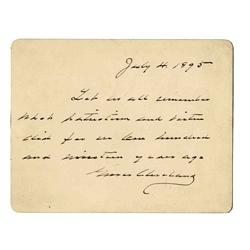 July 4. 1895
Let us all remember
what patriotism and virtue
did for us one hundred
and nineteen years ago
Grover Cleveland